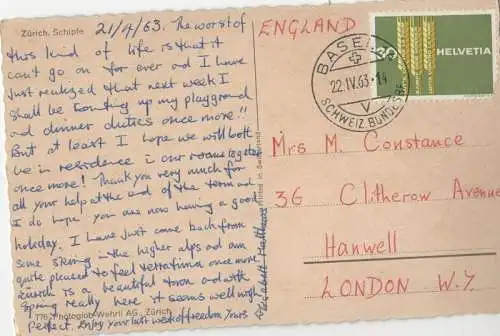 Zürich, Schipfe
21/4/63. The worst of
this kind of life is that it
can't go on for ever and I have
just realized that next week I
shall be totting up my playground
and dinner duties once more!!
But at least I hope we will both
be in residence in our rooms together
once more! Thank you very much for
all your help at the end of the term and
I do hope you are now having a good
holiday. I have just come back from
some skiing in the higher alps and am
quite pleased to feel terra firma once more
Zürich is a beautiful town and with
Spring really here it seems well nigh
perfect. Enjoy your last week of freedom Yours
Elizabeth Matthews
7767 Photoglob-Wehrli AG., Zürich
Printed in Switzerland
ENGLAND
HELVETIA
BASEL
22.IV.63
SCHWEIZ. BUNDESBAHN
Mrs M. Constance
36 Clitherow Avenue
Hanwell
LONDON W.7.